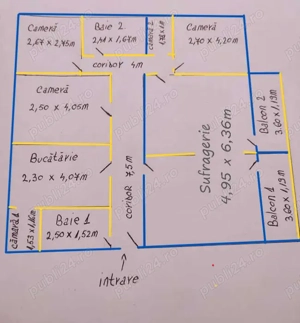 Cameră
2,67 x 2,75m
Baie 2
2,41 x 1,67m
cămară 2
Cameră
2,70 x 4,20m
coridor 4m
Cameră
2,50 x 4,05m
Bucătărie
2,30 x 4,07m
coridor 7,5m
Sufragerie
4,95 x 6,36m
Balcon 2
3.60 x 1,13m
Balcon 1
3.60 x 1,13m
cămară 1
1,53 x 1,16m
Baie 1
2,50 x 1,52m
intrare